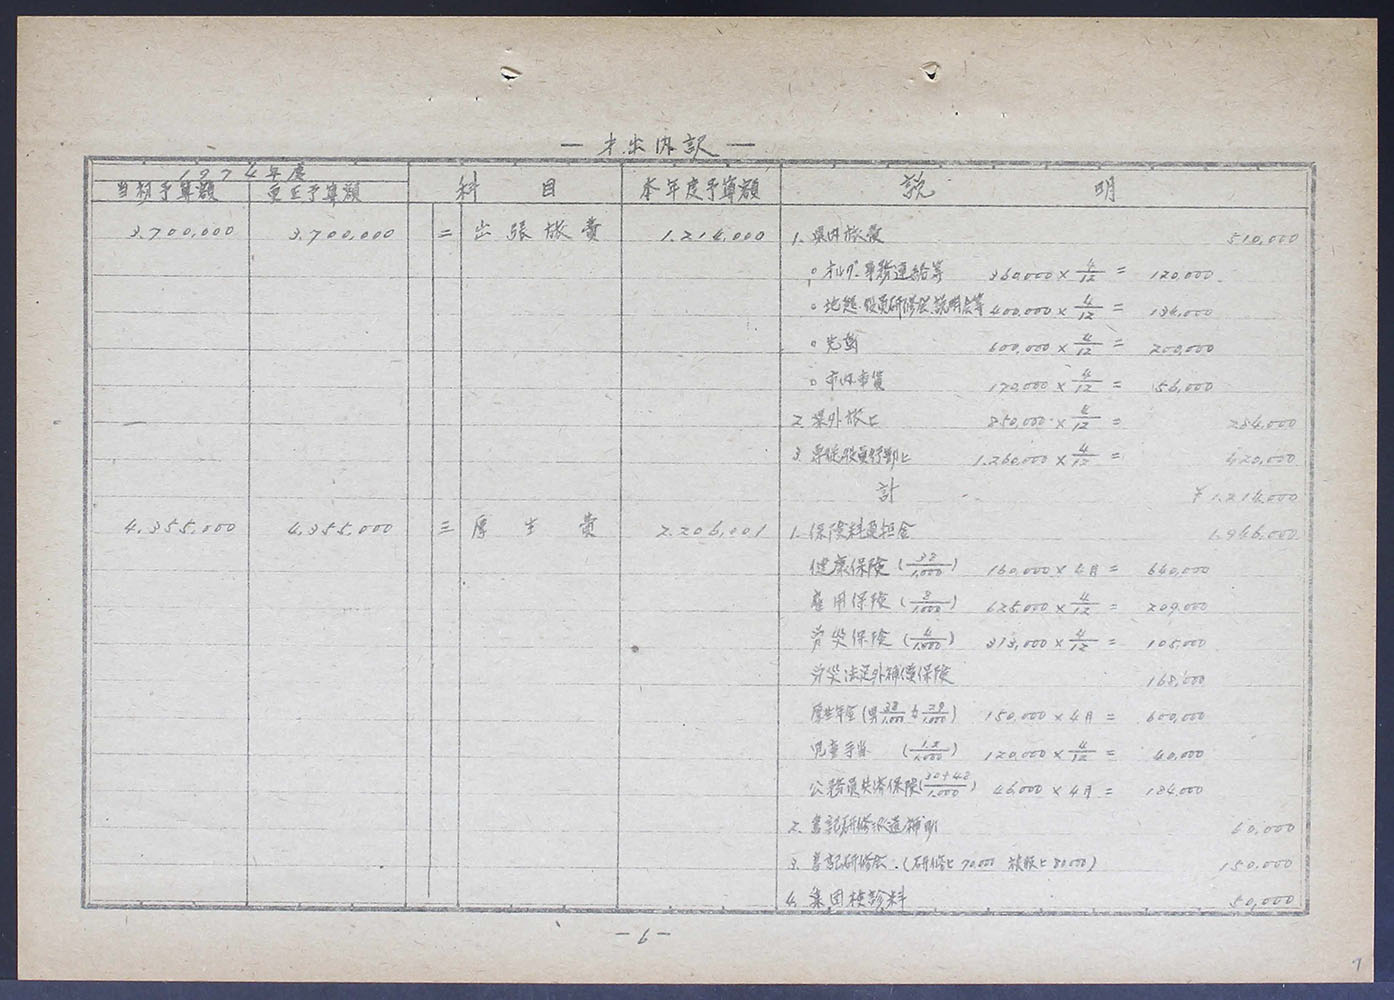 — 才出内訳 —
1974年度
当初予算額 更正予算額 科目 本年度予算額 説明
3.700,000 3.700,000 二 出張旅費 1.214,000 1. 県内旅費 510,000
○ オルグ.事務連絡等 360,000 × 4/12 = 120,000
○ 地起.役員研修会.説明会等 400,000 × 4/12 = 134,000
○ 600,000 × 4/12 = 200,000
○ 市内車賃 170,000 × 4/12 = 56,000
2. 県外旅ヒ 850,000 × 4/12 = 284,000
3. 専従役員行動ヒ 1.260,000 × 4/12 = 420,000
計 ¥1.214,000
4.355,000 4.355,000 三 厚生費 2.206,001 1. 保険料負担金 1.946,000
健康保険 (38/1,000) 160,000 × 4月 = 640,000
雇用保険 (8/1,000) 625,000 × 4/12 = 209,000
労災保険 (4/1,000) 313,000 × 4/12 = 105,000
労災法定外補償保険 168,000
厚生年金 (男 38/1,000 女 29/1,000) 150,000 × 4月 = 600,000
児童手当 (1.2/1,000) 120,000 × 4/12 = 40,000
公務員共済保険 (30+42/1,000) 46,000 × 4月 = 184,000
2. 書記研修派遣補助 60,000
3. 書記研修会.(研修ヒ 70,000 被服ヒ 80,000) 150,000
4. 集団検診料 50,000
—6—
7